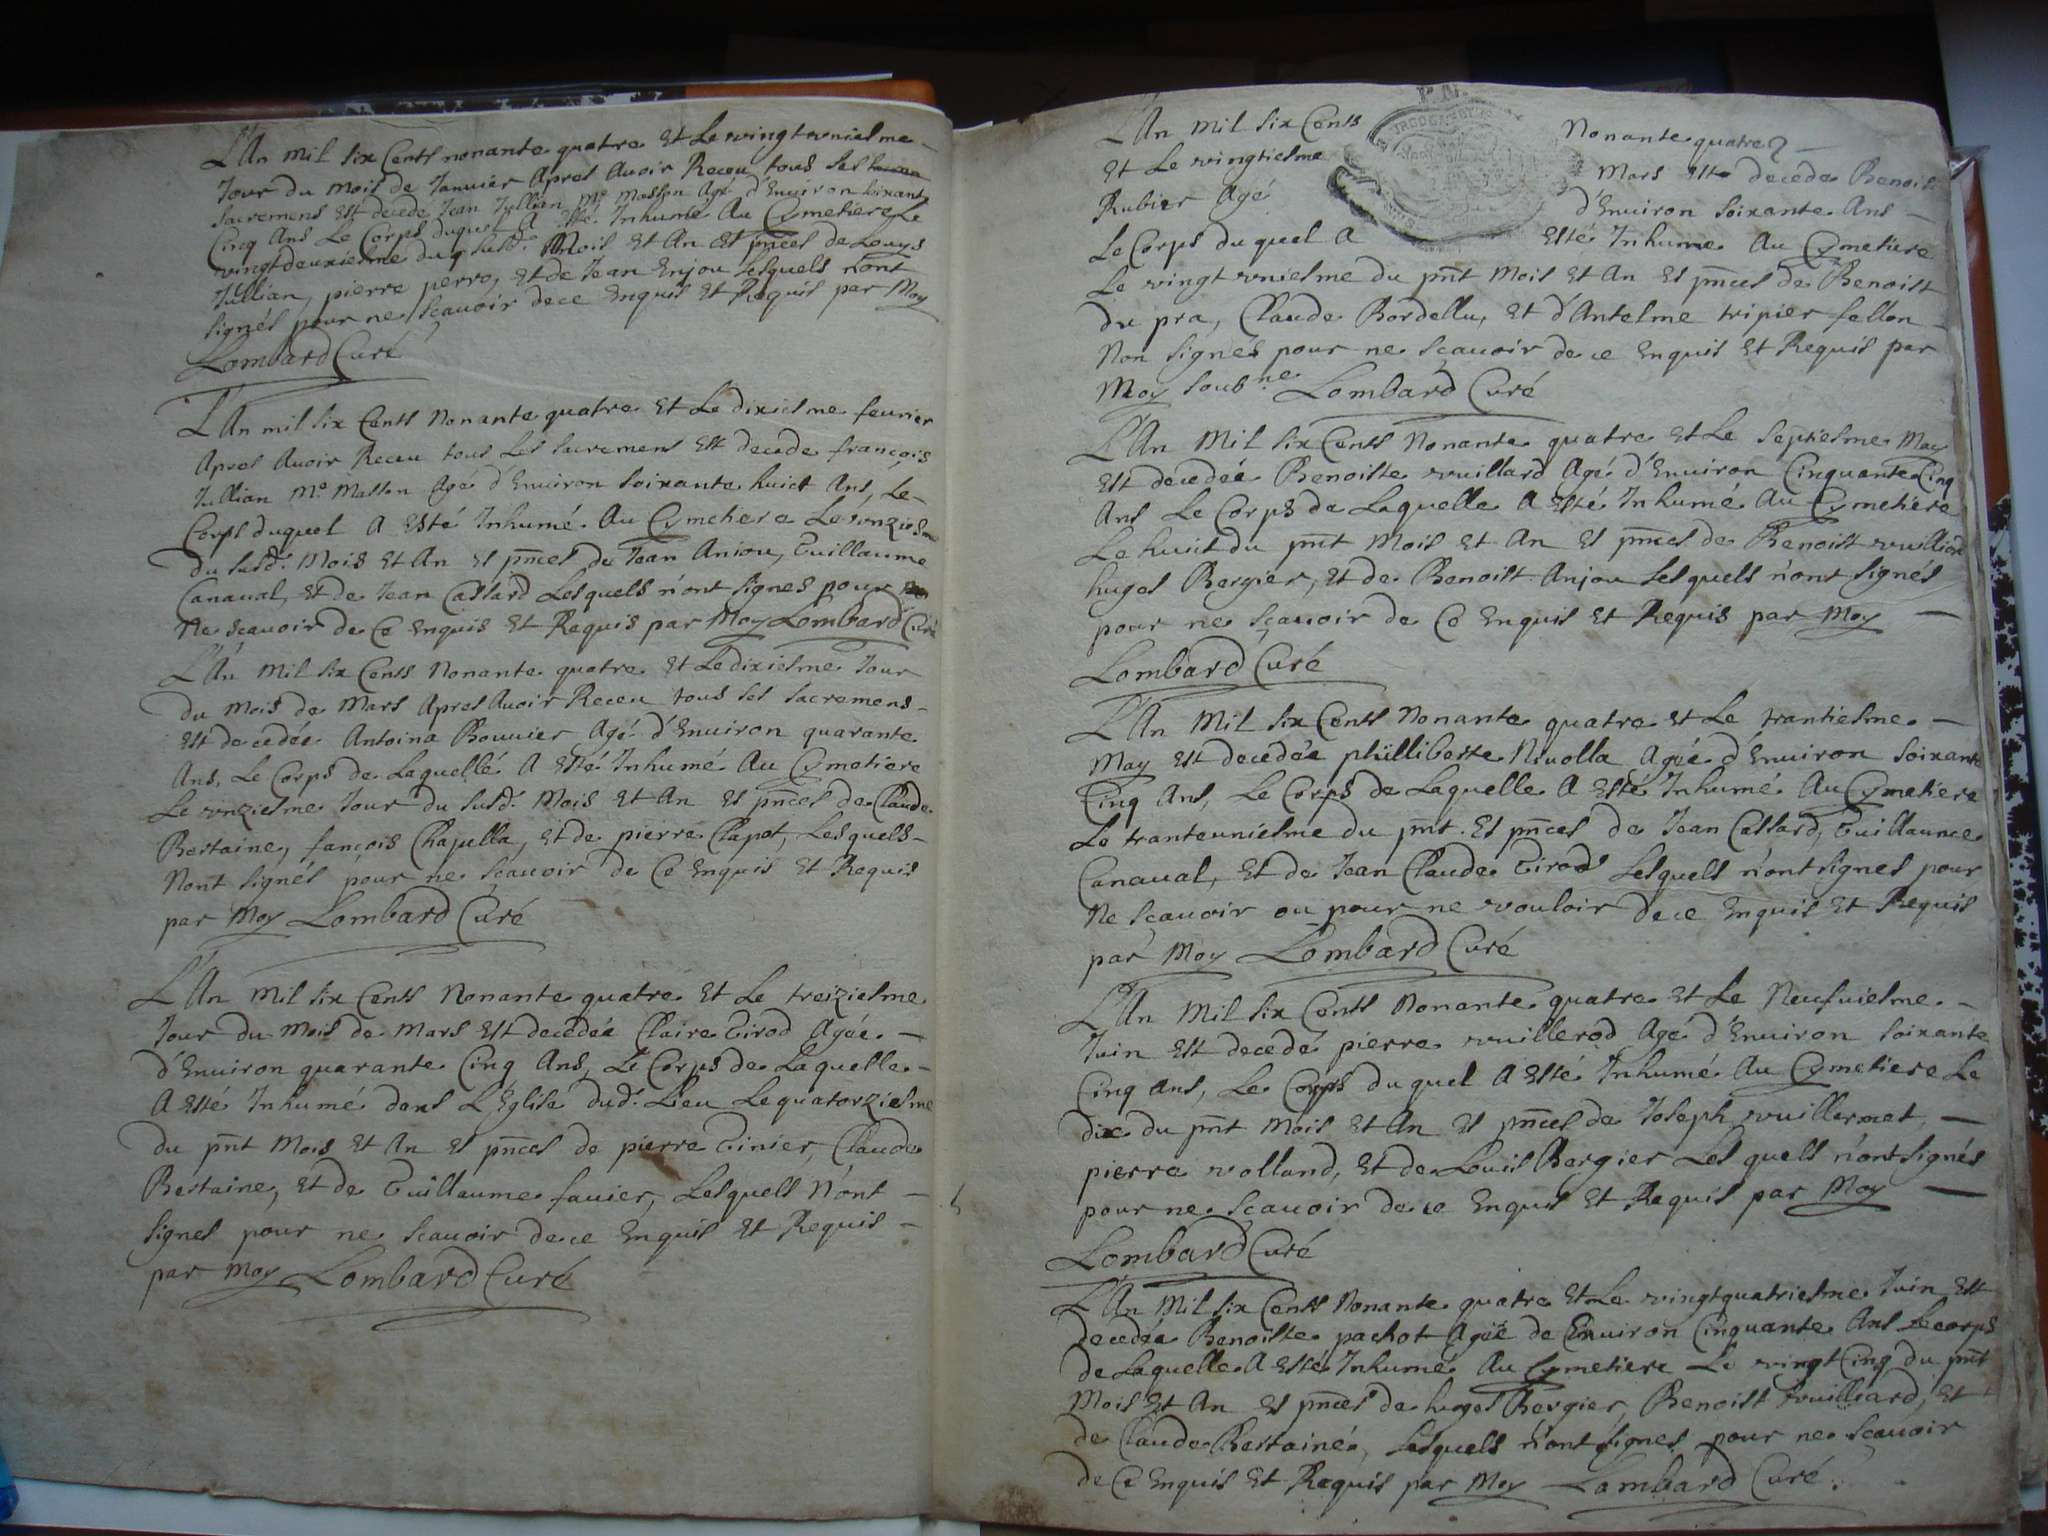 L'An mil six Cents nonante quatre Et Le vingt vniesme
Jour du mois de Januier Apres Auoir Receu tous ses
Sacremens Est decedé Jean Jullian Me Masson Agé d'Enuiron soixante
Cinq Ans Le Corps duquel A Esté Inhumé Au Cymetiere Le
vingt deuxiesme du susd. Mois Et An Es pñces de Louys
Jullian, pierre perro, Et de Jean Enjou Lesquels n'ont
signés pour ne sçauoir de ce Enquis Et Requis par Moy
Lombard Curé
L'An mil six Cents Nonante quatre Et Le dixiesme feurier
Apres Auoir Receu tous Les sacremens Est decede françois
Jullian Me Masson Age d'Enuiron soixante huict Ans, Le
Corps duquel A Esté Inhumé Au Cymetiere Le vnziesme
du susd. Mois Et An Es pñces de Jean Aniou, Guillaume
Canaual, Et de Jean Cassard Lesquels n'ont signes pour
Ne sçauoir de Ce Enquis Et Requis par Moy Lombard Curé
L'An Mil six Cents Nonante quatre Et Le dixiesme Jour
du Mois de Mars Apres Auoir Receu tous ses sacremens
Est decedée Antoina Bouuier Agé d'Enuiron quarante
Ans, Le Corps de Laquelle A Esté Inhumé Au Cymetiere
Le vnziesme Jour du susd. Mois Et An Es pñces de Claude
Bertaine, fançois Chapella, Et de pierre Clapet, Lesquels
Nont signés pour ne sçauoir de Ce Enquis Et Requis
par Moy Lombard Curé
L'An Mil six Cents Nonante quatre Et Le treiziesme
Jour du Mois de Mars Est decedée Claire Girod Agée
d'Enuiron quarante Cinq Ans, Le Corps de Laquelle
A Esté Inhumé dans L'Eglise dud. Lieu Le quatorziesme
du pñt Mois Et An Es pñces de pierre Ginier, Claude
Bertaine, Et de Guillaume fauier, Lesquels N'ont
signes pour ne sçauoir de ce Enquis Et Requis
par Moy Lombard Curé
L'An Mil six Cents Nonante quatre
Et Le vingtiesme Mars Est decede Benoist
Rubier Agé d'Enuiron soixante Ans
Le Corps duquel A Esté Inhumé Au Cymetiere
Le vingt vniesme du pñt Mois Et An Es pñces de Benoist
du pra, Claude Bordellu, Et d'Antelme tripier fellon
Non signés pour ne sçauoir de ce Enquis Et Requis par
Moy soubne Lombard Curé
L'An Mil six Cents Nonante quatre Et Le septiesme May
Est decedée Benoiste vuillard Agé d'Enuiron Cinquante Cinq
Ans Le Corps de Laquelle A Esté Inhumé Au Cymetiere
Le huict du pñt Mois Et An Es pñces de Benoist
huges Bergier, Et de Benoist Anjou Lesquels n'ont signés
pour ne sçauoir de Ce Enquis Et Requis par Moy
Lombard Curé
L'An Mil six Cents Nonante quatre Et Le trantiesme
May Est decedée philliberte Niuolla Agée d'Enuiron soixante
Cinq Ans, Le Corps de Laquelle A Esté Inhumé Au Cymetiere
Le tranteuniesme du pñt. Es pñces de Jean Cassard, Guillaume
Canaual, Et de Jean Claude Girod Lesquels n'ont signes pour
Ne sçauoir ou pour ne vouloir de ce Enquis Et Requis
par Moy Lombard Curé
L'An Mil six Cents Nonante quatre Et Le Neufuiesme
Juin Est decedé pierre vuillerod Agé d'Enuiron soixante
Cinq Ans, Le Corps duquel A Esté Inhumé Au Cymetiere Le
dix du pñt Mois Et An Es pñces de Joseph vuillermet,
pierre volland, Et de Louis Bergier Les quels n'ont signés
pour ne sçauoir de ce Enquis Et Requis par Moy
Lombard Curé
L'An Mil six Cents Nonante quatre Et Le vingtquatriesme Juin Est
decedée Benoiste pachot Agée de Enuiron Cinquante Ans Le corps
de Laquelle A Esté Inhumé Au Cymetiere Le vingt Cinq du pñt
Mois Et An Es pñces de huges Bergier, Benoist vuilliard, Et
de Claude Bertaine, Lesquels n'ont signes pour ne sçauoir
de Ce Enquis Et Requis par Moy Lombard Curé